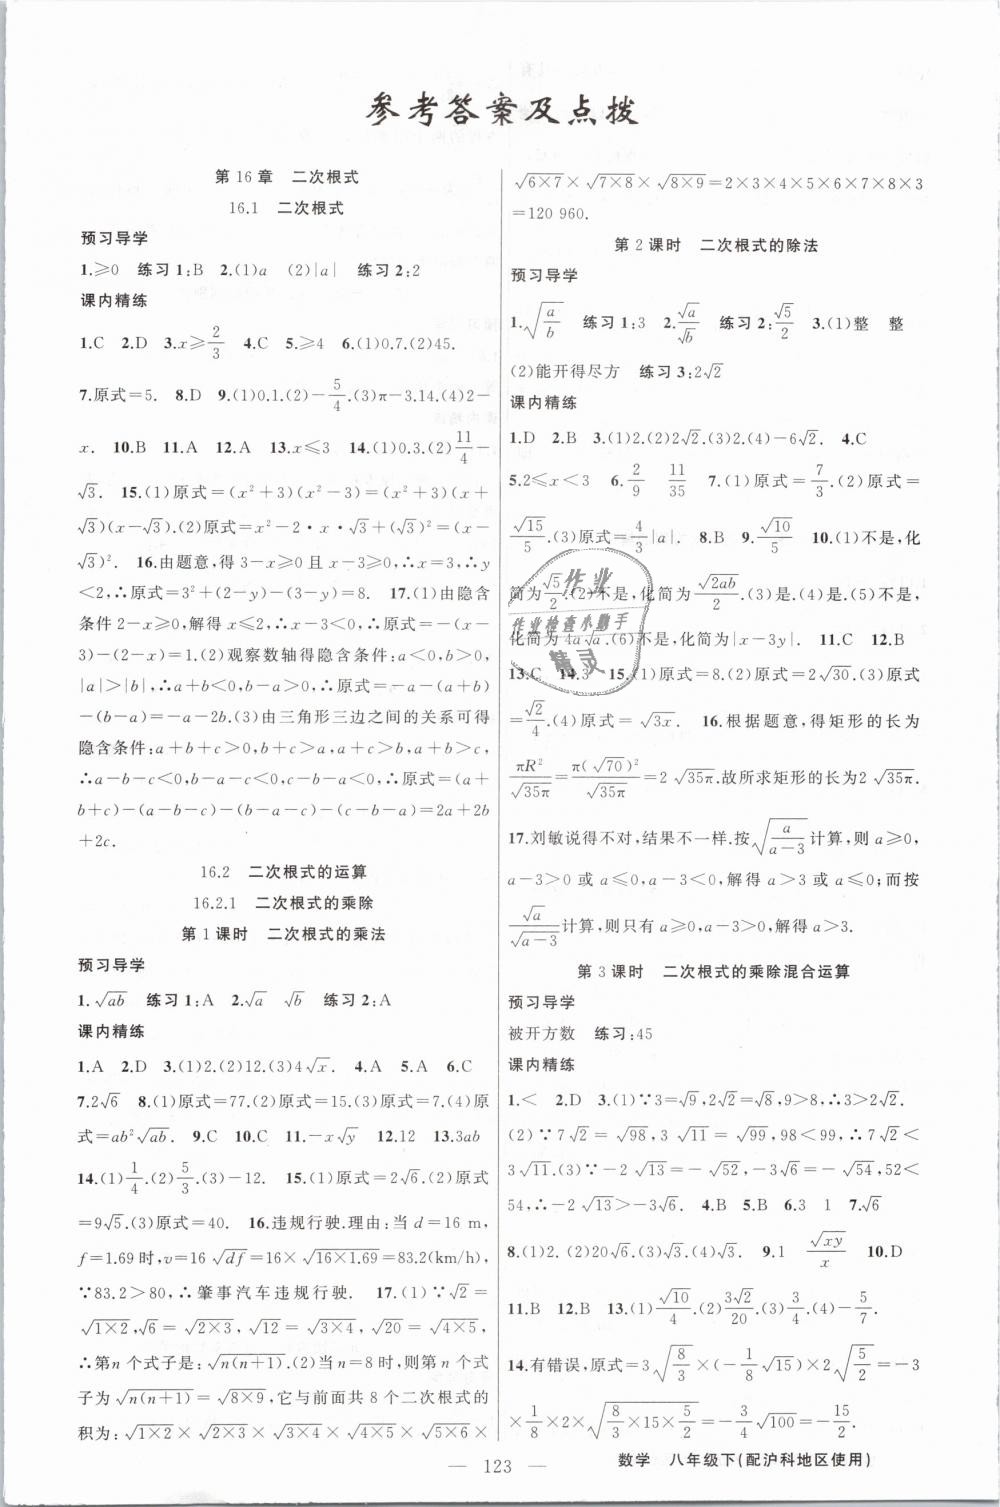 参考答案及点拨
第16章 二次根式
16.1 二次根式
预习导学
1.≥0 练习1:B 2.(1)a (2)|a| 练习2:2
课内精练
1.C 2.D 3.x≥2/3 4.C 5.≥4 6.(1)0.7.(2)45.
7.原式=5. 8.D 9.(1)0.1.(2)-5/4.(3)π-3.14.(4)2-
x. 10.B 11.A 12.A 13.x≤3 14.(1)0.3.(2)11/4-
√3. 15.(1)原式=(x²+3)(x²-3)=(x²+3)(x+
√3)(x-√3).(2)原式=x²-2·x·√3+(√3)²=(x-
√3)². 16.由题意,得3-x≥0且x-3≥0,∴x=3,∴y
<2,∴原式=3²+(2-y)-(3-y)=8. 17.(1)由隐含
条件2-x≥0,解得x≤2,∴x-3<0,∴原式=-(x-
3)-(2-x)=1.(2)观察数轴得隐含条件:a<0,b>0,
|a|>|b|,∴a+b<0,b-a>0,∴原式=-a-(a+b)
-(b-a)=-a-2b.(3)由三角形三边之间的关系可得
隐含条件:a+b+c>0,b+c>a,a+c>b,a+b>c,
∴a-b-c<0,b-a-c<0,c-b-a<0,∴原式=(a+
b+c)-(a-b-c)-(b-a-c)-(c-b-a)=2a+2b
+2c.
16.2 二次根式的运算
16.2.1 二次根式的乘除
第1课时 二次根式的乘法
预习导学
1.√ab 练习1:A 2.√a √b 练习2:A
课内精练
1.A 2.D 3.(1)2.(2)12.(3)4√x. 4.A 5.A 6.C
7.2√6 8.(1)原式=77.(2)原式=15.(3)原式=7.(4)原
式=ab²√ab. 9.C 10.C 11.-x√y 12.12 13.3ab
14.(1)1/4.(2)5/3.(3)-12. 15.(1)原式=2√6.(2)原式
=9√5.(3)原式=40. 16.违规行驶.理由:当d=16 m,
f=1.69时,v=16√df=16×√16×1.69=83.2(km/h),
∵83.2>80,∴肇事汽车违规行驶. 17.(1)∵√2=
√1×2,√6=√2×3,√12=√3×4,√20=√4×5,
∴第n个式子是:√n(n+1).(2)当n=8时,则第n个式
子为√n(n+1)=√8×9,它与前面共8个二次根式的
积为:√1×2×√2×3×√3×4×√4×5×√5×6×
√6×7×√7×8×√8×9=2×3×4×5×6×7×8×3
=120 960.
第2课时 二次根式的除法
预习导学
1.√(a/b) 练习1:3 2.√a/√b 练习2:√5/2 3.(1)整 整
(2)能开得尽方 练习3:2√2
课内精练
1.D 2.B 3.(1)2.(2)2√2.(3)2.(4)-6√2. 4.C
5.2≤x<3 6.2/9 11/35 7.(1)原式=7/3.(2)原式=
√15/5.(3)原式=4/3|a|. 8.B 9.√10/5 10.(1)不是,化
简为√5/2.(2)不是,化简为√2ab/2.(3)是.(4)是.(5)不是,
化简为4a√a.(6)不是,化简为|x-3y|. 11.C 12.B
13.C 14.3 15.(1)原式=8.(2)原式=2√30.(3)原式
=√2/4.(4)原式=√3x. 16.根据题意,得矩形的长为
πR²/√35π=π(√70)²/√35π=2√35π.故所求矩形的长为2√35π.
17.刘敏说得不对,结果不一样.按√(a/(a-3))计算,则a≥0,
a-3>0或a≤0,a-3<0,解得a>3或a≤0;而按
√a/√a-3计算,则只有a≥0,a-3>0,解得a>3.
第3课时 二次根式的乘除混合运算
预习导学
被开方数 练习:45
课内精练
1.< 2.D 3.(1)∵3=√9,2√2=√8,9>8,∴3>2√2.
(2)∵7√2=√98,3√11=√99,98<99,∴7√2<
3√11.(3)∵-2√13=-√52,-3√6=-√54,52<
54,∴-2√13>-3√6. 4.B 5.B 6.3 1 7.√6
8.(1)2.(2)20√6.(3)√3.(4)√3. 9.1 √xy/x 10.D
11.B 12.B 13.(1)√10/4.(2)3√2/20.(3)3/4.(4)-5/7.
14.有错误,原式=3√(8/3)×(-1/8√15)×2√(5/2)=-3
×1/8×2×√(8/3×15×5/2)=-3/4√100=-15/2.
作业
作业检查小助手
精灵
— 123 —
数学 八年级下(配沪科地区使用)